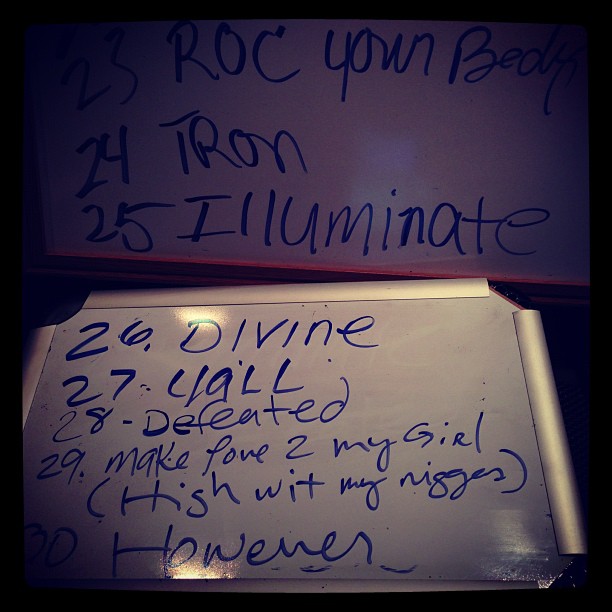 23 ROC your Body
24 TRon
25 Illuminate
26. DIVINE
27. YaLL
28 - Defeated
29. make love 2 my Girl
(High wit my niggas)
30 However